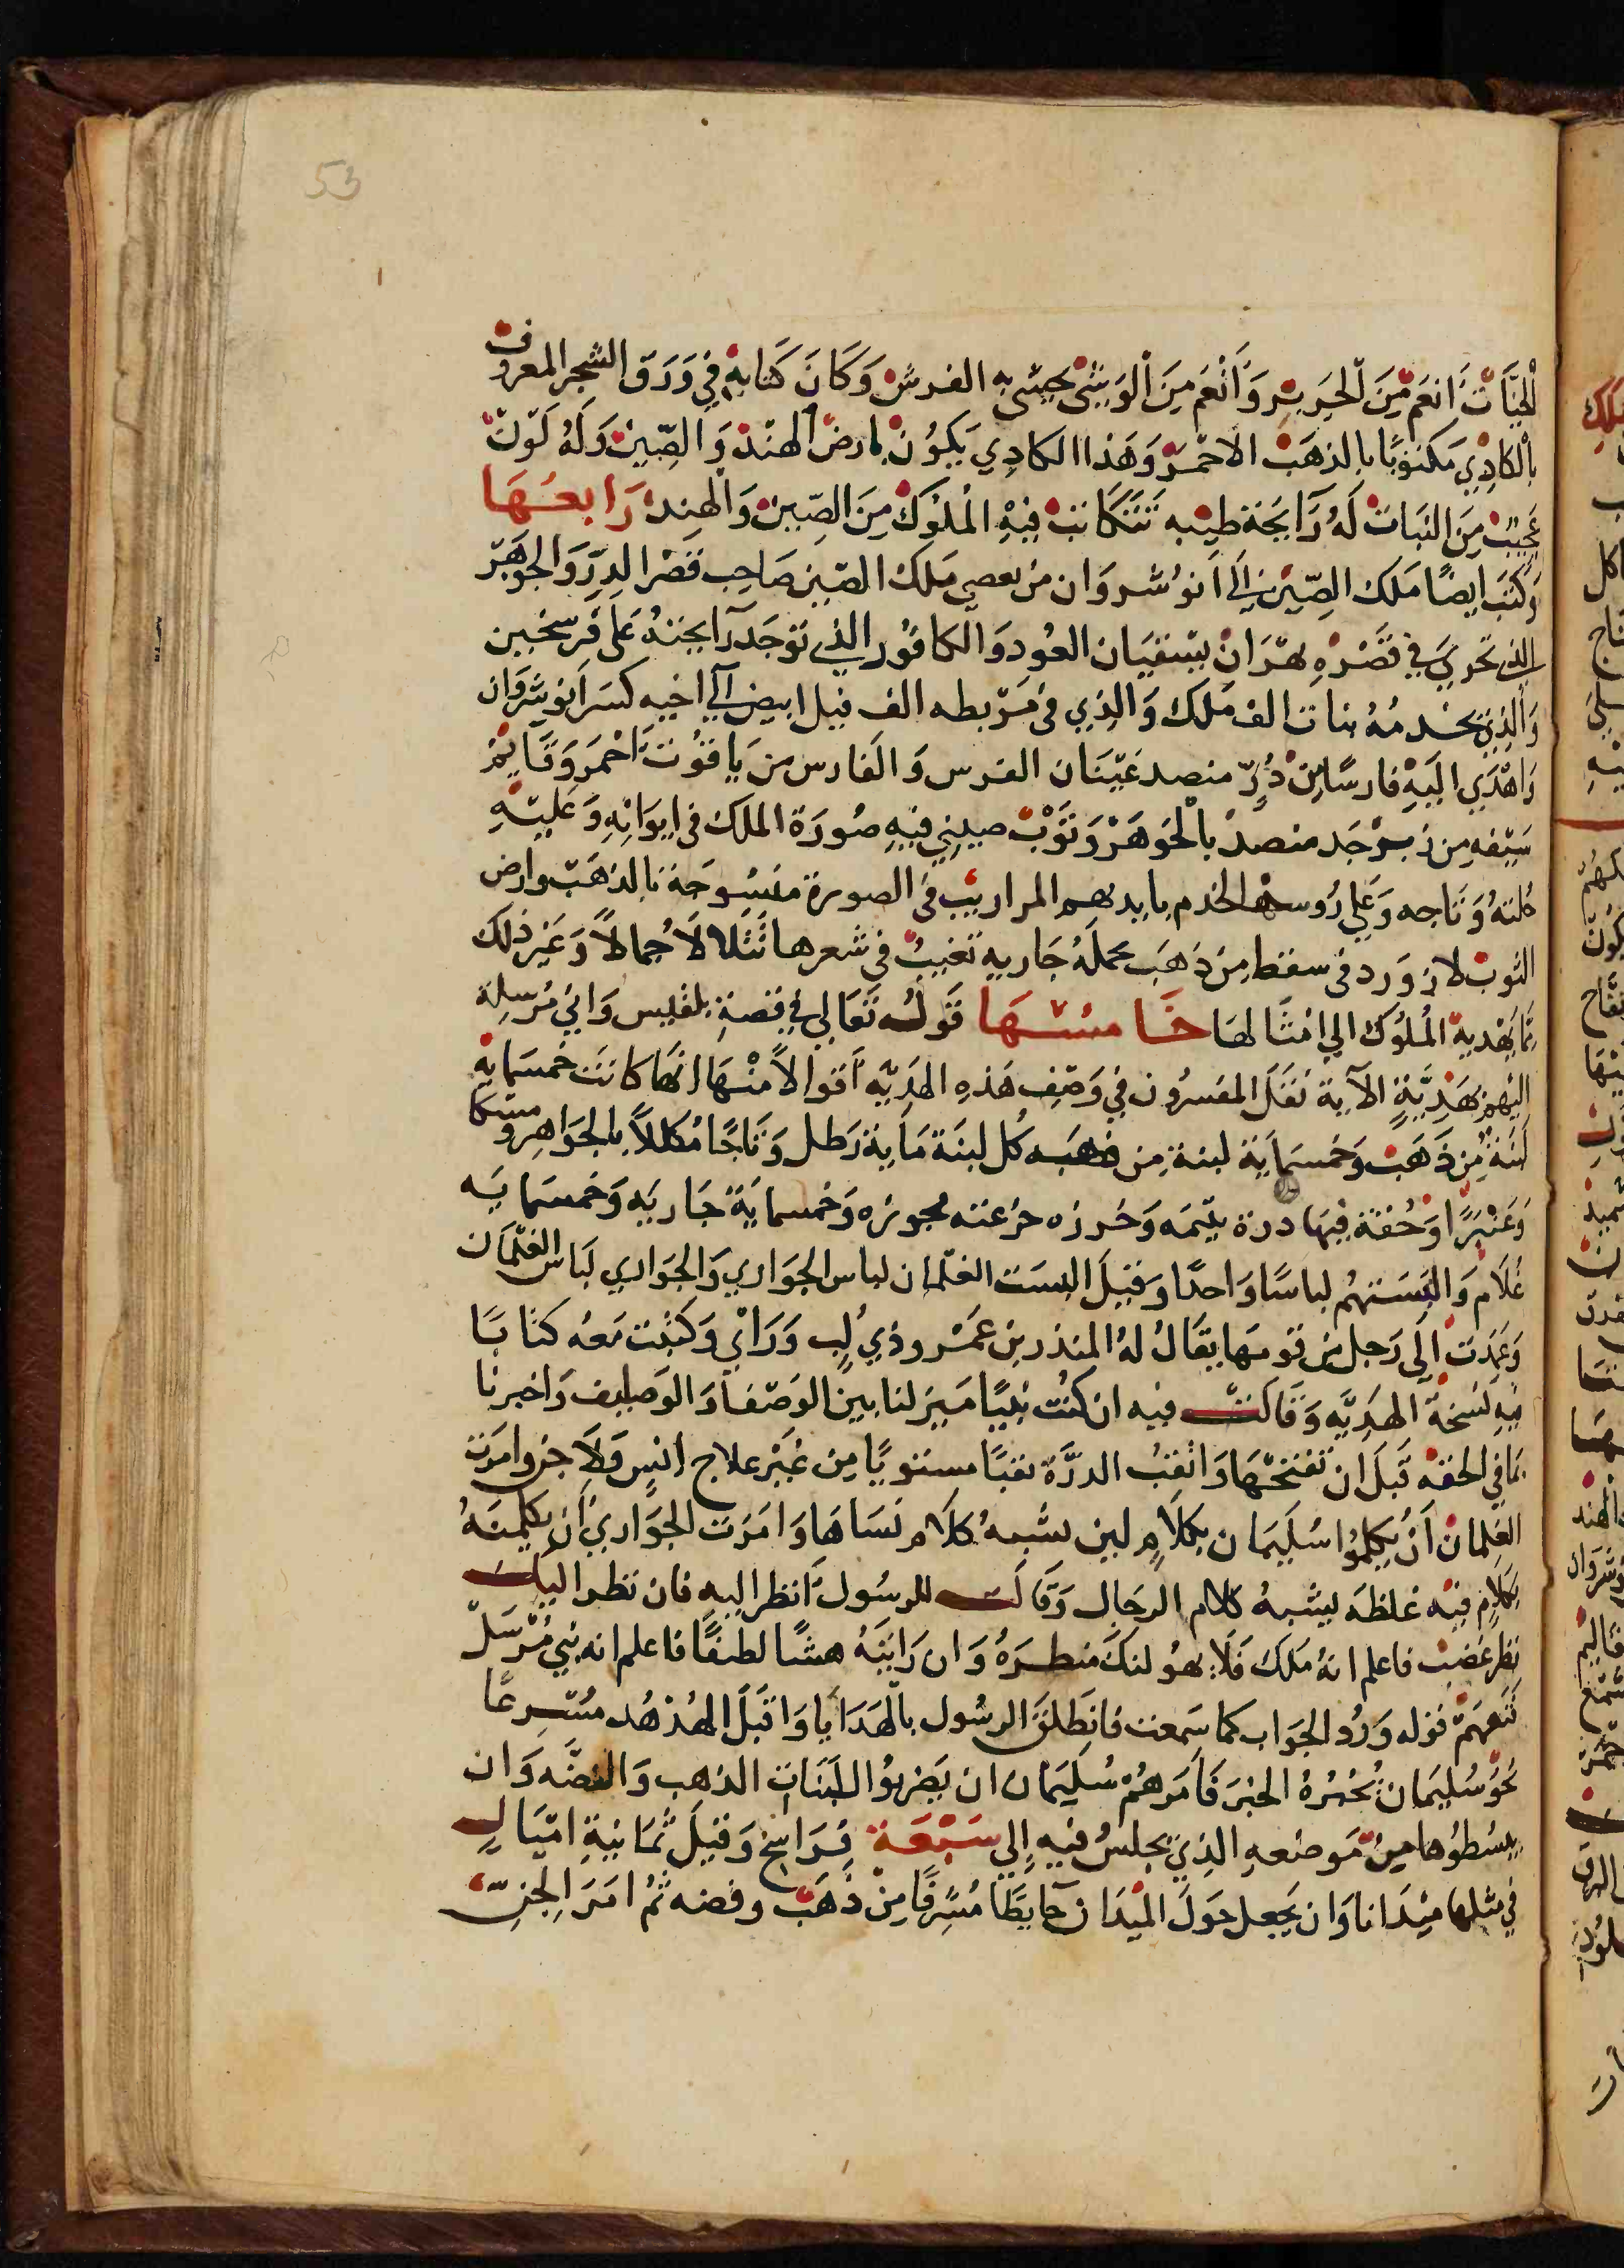 53
الحيات انعم من الحرير وانعم من الوشى يحشى به الفرش وكان كتابه في ورق الشجر المعروف
بالكادي مكتوبا بالذهب الاحمر وهذا الكادي يكون بارض الهند والصين وله لون
عجيب من النبات له رايحة طيبه تتكاتب فيه الملوك من الصين والهند رابعها
وكتب ايضا ملك الصين الى انوشروان من يعصي ملك الصين صاحب قصر الدر والجوهر
الذي تجري في قصره نهران يسقيان العود والكافور الذي توجد رايحته على فرسخين
والذي تخدمه بنات الف ملك والذي في مربطه الف فيل ابيض الى اخيه كسرى انوشروان
واهدى اليه فارسا من در منضد عينان الفرس والفارس من ياقوت احمر وقايم
سيفه من زبرجد منضد بالجوهر وثوب صيني فيه صورة الملك في ايوانه وعليه
حلته وتاجه وعلى روسها الخدم بايديهم المراريب في الصورة منسوجة بالذهب وارض
الثوب لازورد في سفط من ذهب تحمله جاريه تغيب في شعرها تتلالا جمالا وغير ذلك
مما يهديه الملوك الى امثالها خامسها قوله تعالى في قصة بلقيس واني مرسلة
اليهم بهدية الاية نقل المفسرون في وصف هذه الهديه اقوالا منها انها كانت خمسمايه
لبنة من ذهب وخمسماية لبنة من فضه كل لبنة ماية رطل وتاجا مكللا بالجواهر ومسكا
وعنبرا وحقة فيها درة يتيمه وخرزه جزعته مجوزه وخمسماية جاريه وخمسمايه
غلام والبستهم لباسا واحدا وقيل البست الغلمان لباس الجواري والجواري لباس الغلمان
وعمدت الى رجل من قومها يقال له المنذر بن عمرو ذي لب وراي وكتبت معه كتابا
فيه نسخة الهديه وقالت فيه ان كنت نبيا ميز لنا بين الوصفا والوصايف واخبرنا
بما في الحقه قبل ان تفتحها واثقب الدرة ثقبا مستويا من غير علاج انس ولا جن وامرت
الغلمان ان يكلموا سليمان بكلام لين يشبه كلام نساها وامرت الجواري ان يكلمنه
بكلام فيه غلظه يشبه كلام الرجال وقالت للرسول انظر اليه فان نظر اليك
نظر غضب فاعلم انه ملك فلا يهولنك منظره وان رايته هشا لطفا فاعلم انه نبي مرسل
تفهم قوله ورد الجواب كما سمعت فانطلق الرسول بالهدايا واقبل الهدهد مسرعا
نحو سليمان يخبره الخبر فامرهم سليمان ان يضربوا اللبنات الذهب والفضه وان
يبسطوها من موضعه الذي يجلس فيه الى سبعة فراسخ وقيل ثمانية اميال
في مثلها ميدانا وان يجعل حول الميدان حايطا مشرفا من ذهب وفضه ثم امر الجن